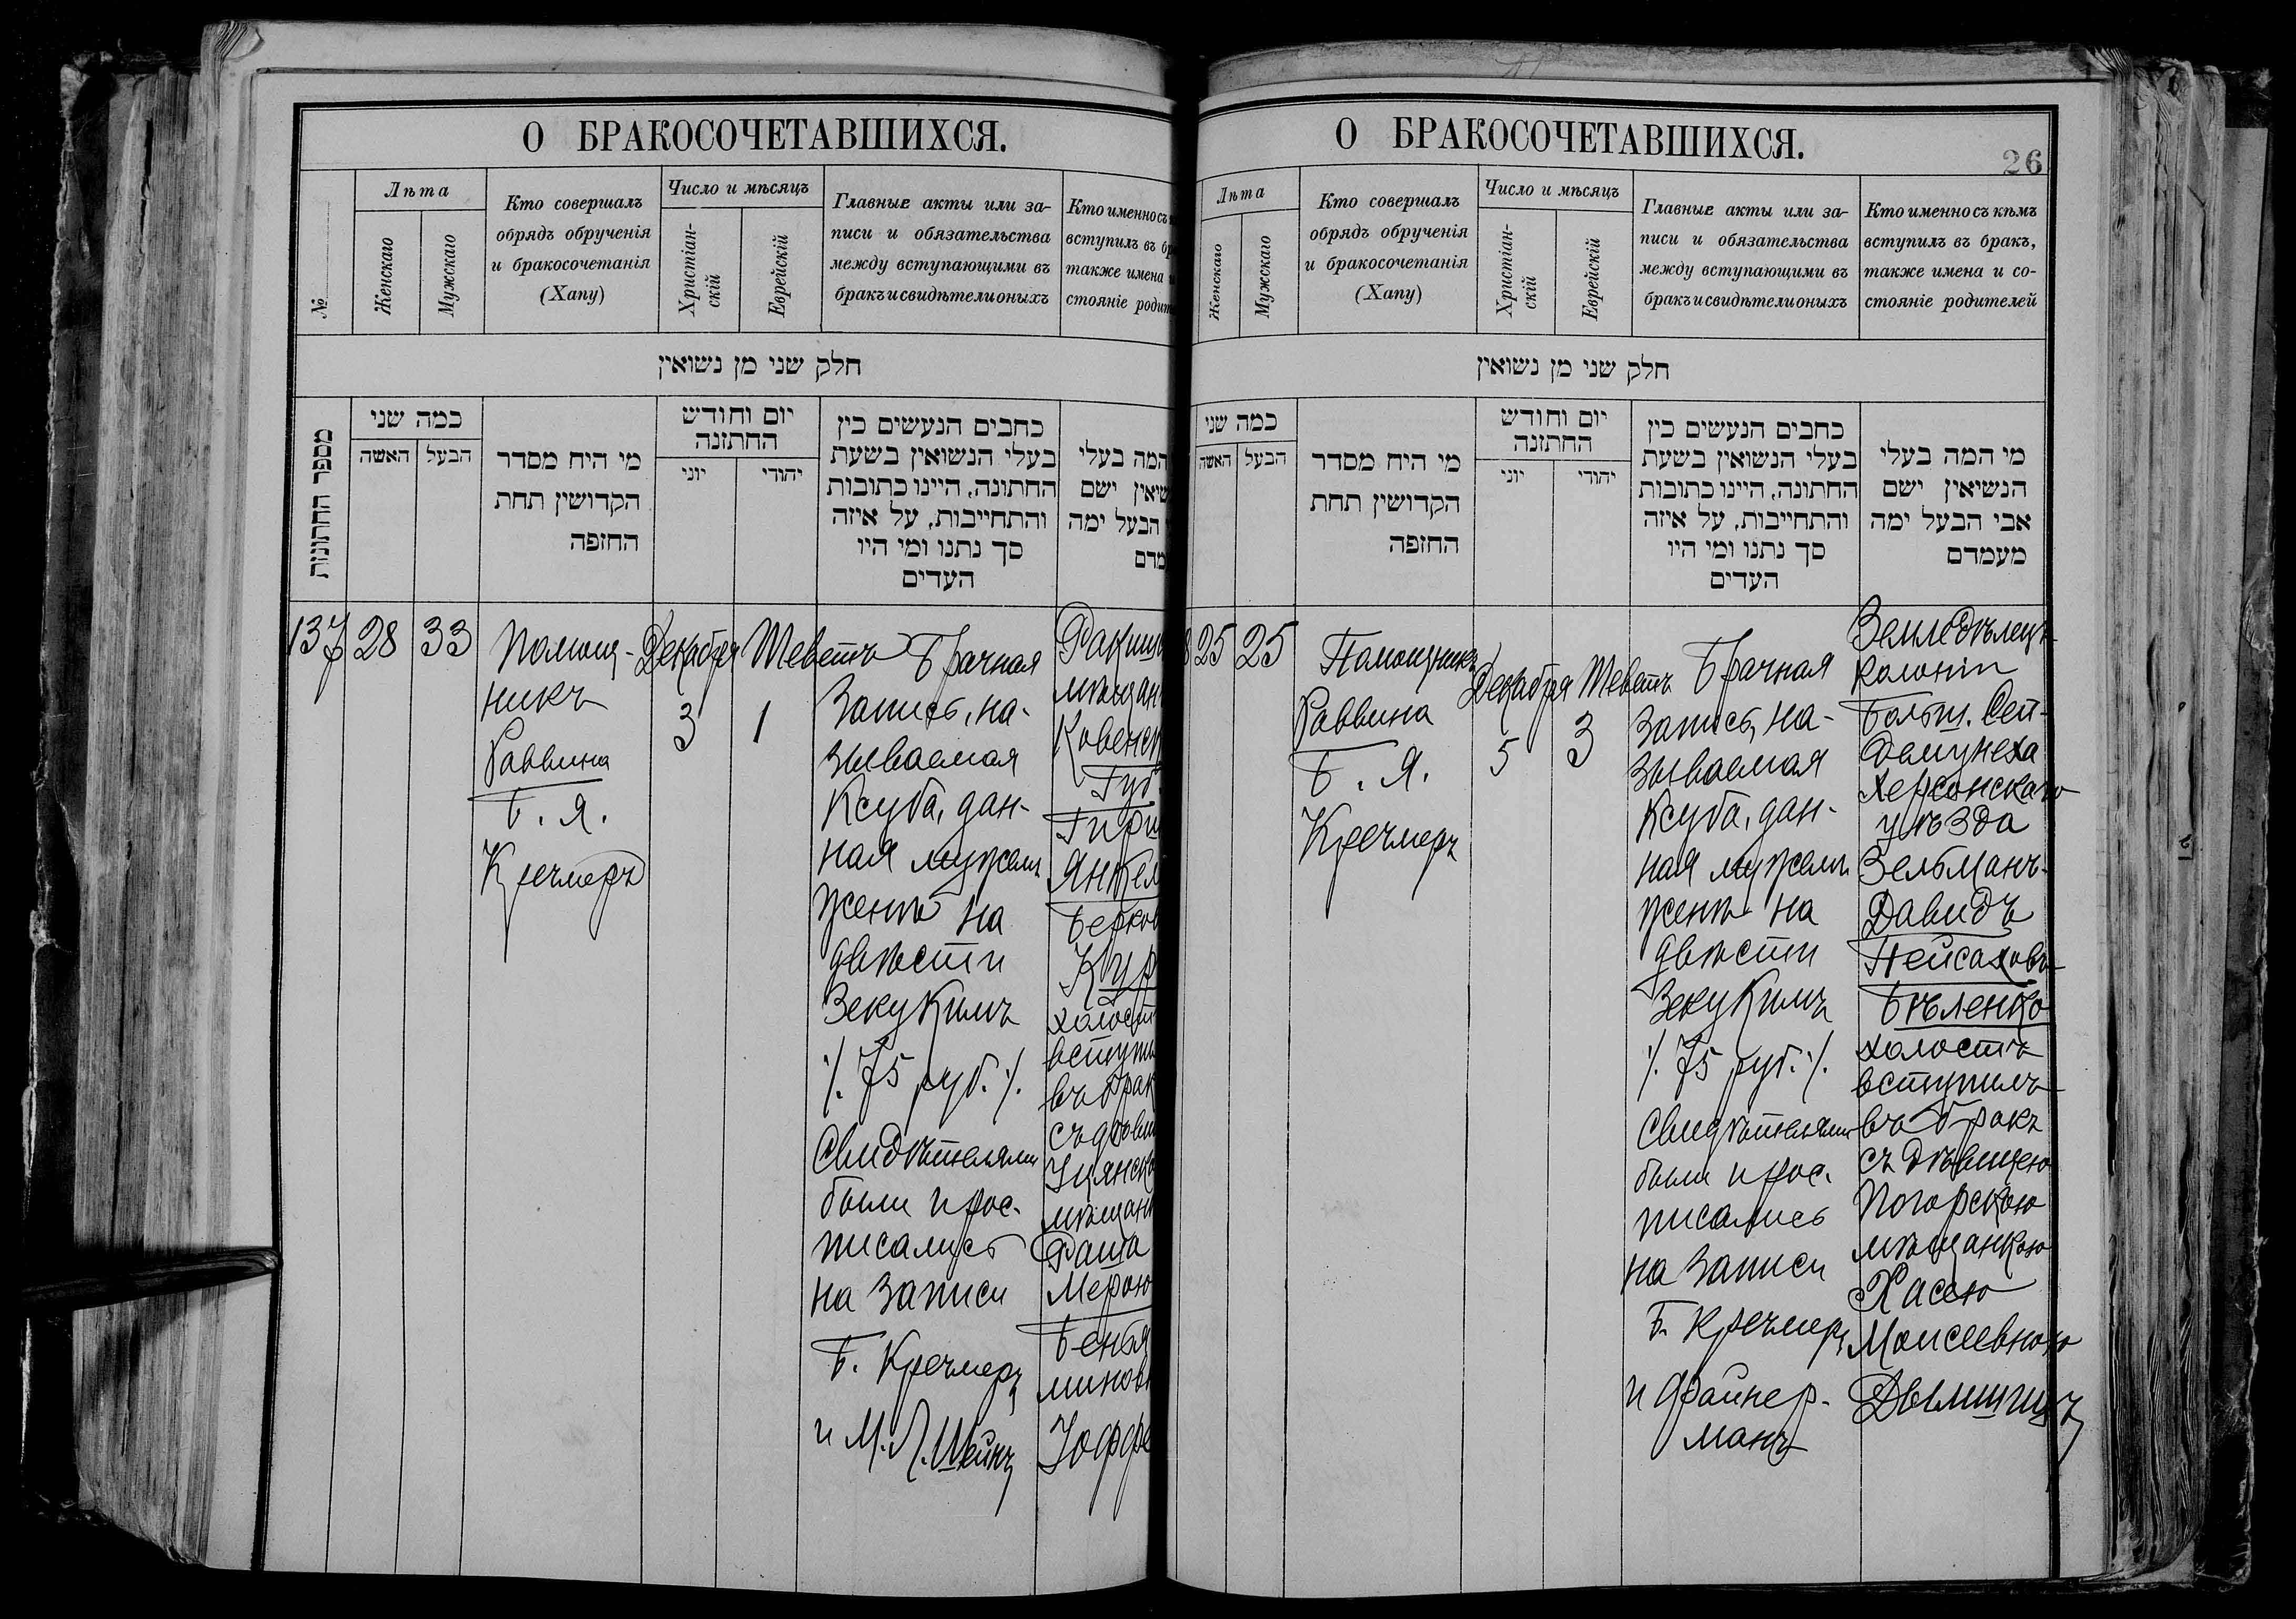 О БРАКОСОЧЕТАВШИХСЯ.
№
Лѣта
Женскаго
Мужскаго
Кто совершалъ
обрядъ обрученія
и бракосочетанія
(Хапу)
Число и мѣсяцъ
Христіан-
скій
Еврейскій
Главные акты или за-
писи и обязательства
между вступающими въ
бракъ и свидѣтели оныхъ
Кто именно съ
вступилъ въ бр
также имена
стояніе родит
חלק שני מן נשואין
מספר החתונות
כמה שני
האשה
הבעל
מי היה מסדר
הקדושין תחת
החופה
יום וחודש
החתונה
יוני
יהודי
כתבים הנעשים בין
בעלי הנשואין בשעת
החתונה, היינו כתובות
והתחייבות, על איזה
סך נתנו ומי היו
העדים
המה בעלי
שיאין ישם
הבעל ימה
מדם
137
28
33
Помощ-
никъ
Раввина
Б. Я.
Кречмеръ
Декабря
3
Теветъ
1
Брачная
запись, на-
зываемая
Ксуба, дан-
ная мужемъ
женѣ на
двѣсти
Зекукимъ
/. 75 руб. /.
Свидѣтелями
были и рос-
писались
на записи
Б. Кречмеръ
и М. Л. Шейнъ
Ракиш
мѣщан
Ковенск
Губ
Гирш
Янкел
Берков
Кур
холост
вступи
въ брак
съ дѣви
Уцянск
мѣщанк
Фаша
Мерою
Бенья
минов
Іоффе
О БРАКОСОЧЕТАВШИХСЯ.
26
Лѣта
Женскаго
Мужскаго
Кто совершалъ
обрядъ обрученія
и бракосочетанія
(Хапу)
Число и мѣсяцъ
Христіан-
скій
Еврейскій
Главные акты или за-
писи и обязательства
между вступающими въ
бракъ и свидѣтели оныхъ
Кто именно съ кѣмъ
вступилъ въ бракъ,
также имена и со-
стояніе родителей
חלק שני מן נשואין
כמה שני
האשה
הבעל
מי היה מסדר
הקדושין תחת
החופה
יום וחודש
החתונה
יוני
יהודי
כתבים הנעשים בין
בעלי הנשואין בשעת
החתונה, היינו כתובות
והתחייבות, על איזה
סך נתנו ומי היו
העדים
מי המה בעלי
הנשיאין ישם
אבי הבעל ימה
מעמדם
8
25
25
Помощникъ
Раввина
Б. Я.
Кречмеръ
Декабря
5
Теветъ
3
Брачная
запись, на-
зываемая
Ксуба, дан-
ная мужемъ
женѣ на
двѣсти
Зекукимъ
/. 75 руб. /.
Свидѣтелями
были и рос-
писались
на записи
Б. Кречмеръ
и Файнер-
манъ
Земледѣлецъ
колоніи
Больш. Сей-
деминуха
Херсонскаго
уѣзда
Зельманъ-
Давидъ
Пейсаховъ
Бѣленко
холостъ
вступилъ
въ бракъ
съ дѣвицею
Погорскою
мѣщанкою
Хасею
Моисеевною
Дымшицъ